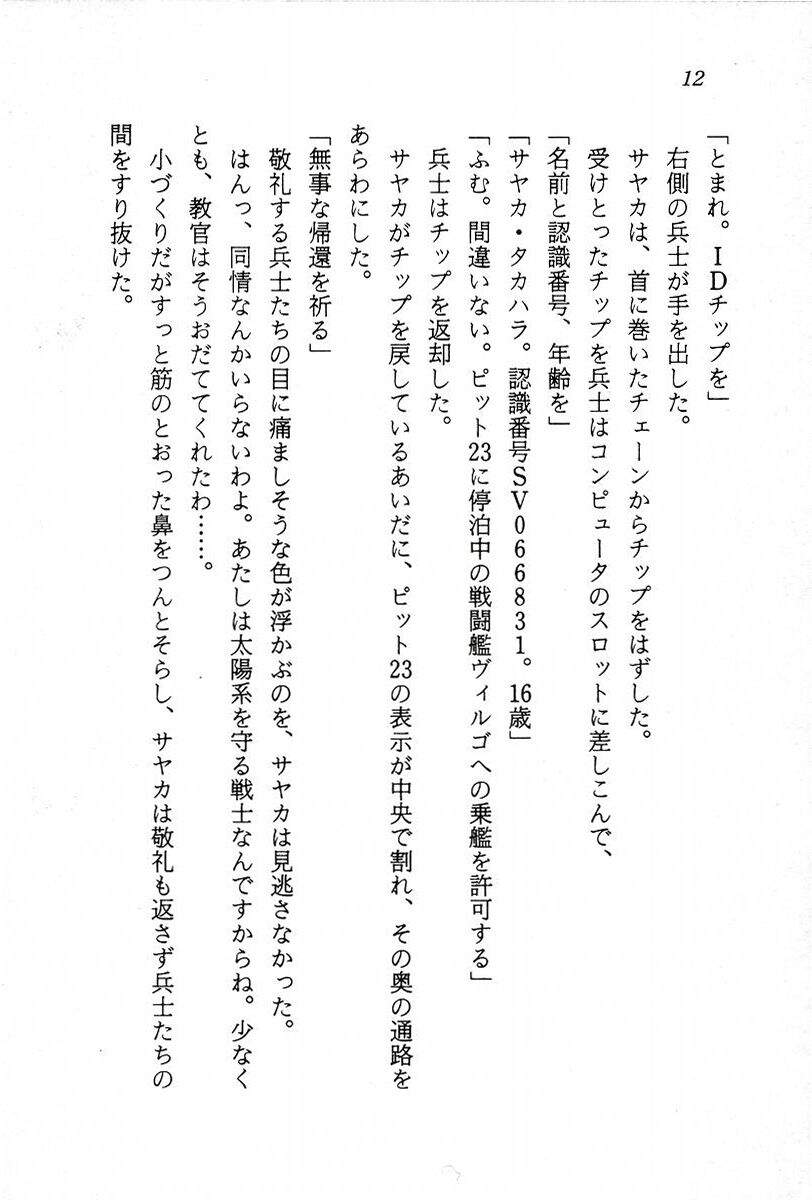 12
「とまれ。IDチップを」
右側の兵士が手を出した。
サヤカは、首に巻いたチェーンからチップをはずした。
受けとったチップを兵士はコンピュータのスロットに差しこんで、
「名前と認識番号、年齢を」
「サヤカ・タカハラ。認識番号SV066831。16歳」
「ふむ。間違いない。ピット23に停泊中の戦闘艦ヴィルゴへの乗艦を許可する」
兵士はチップを返却した。
サヤカがチップを戻しているあいだに、ピット23の表示が中央で割れ、その奥の通路を
あらわにした。
「無事な帰還を祈る」
敬礼する兵士たちの目に痛ましそうな色が浮かぶのを、サヤカは見逃さなかった。
はんっ、同情なんかいらないわよ。あたしは太陽系を守る戦士なんですからね。少なく
とも、教官はそうおだててくれたわ……。
小づくりだがすっと筋のとおった鼻をつんとそらし、サヤカは敬礼も返さず兵士たちの
間をすり抜けた。